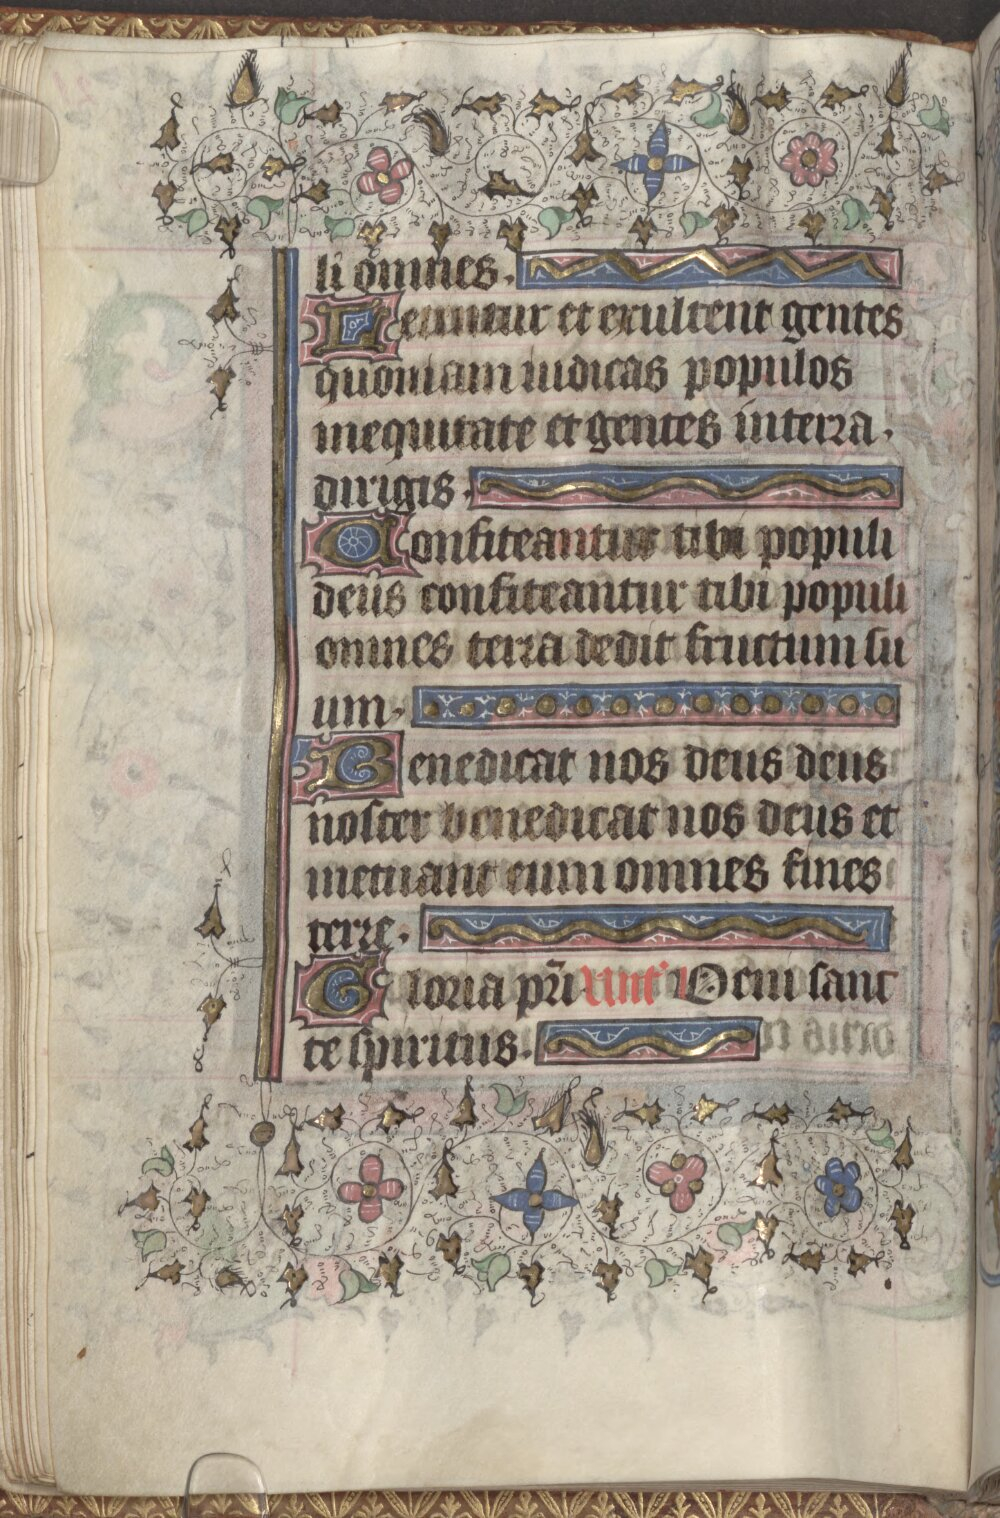 li omnes.
Letentur et exultent gentes
quoniam iudicas populos
inequitate et gentes interra.
dirigis.
Confiteantur tibi populi
deus confiteantur tibi populi
omnes terra dedit fructum su
um.
Benedicat nos deus deus
noster benedicat nos deus et
metuant eum omnes fines
terre.
Gloria pr̄i Ant' Veni sanc
te spiritus.